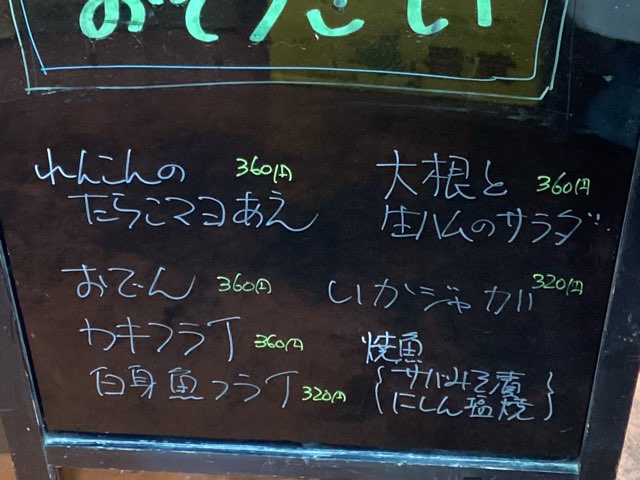 おそうざい
れんこんの 360円
たらこマヨあえ
大根と 360円
生ハムのサラダ
おでん 360円
いかジャガ 320円
カキフライ 360円
白身魚フライ 320円
焼魚
サバみそ漬
にしん塩焼